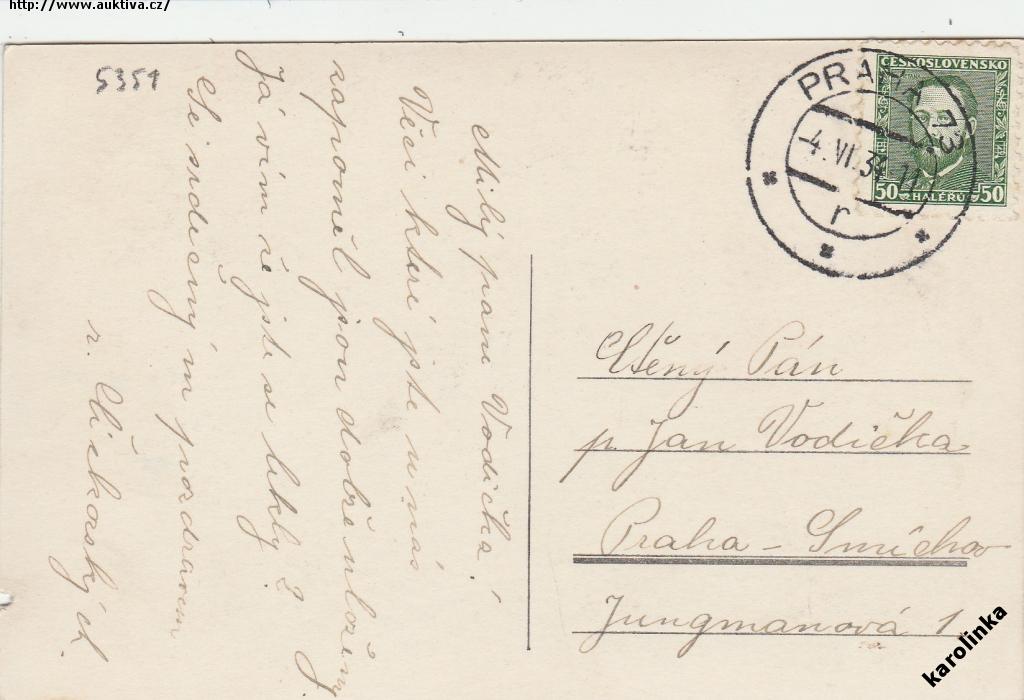 http://www.auktiva.cz/
5351
Milý pane Vodička!
Věci které jste u nás
zapoměl jsou dobře uloženy
Já vím že jste se lekly?
Se srdečným pozdravem
r.
PRAHA 73
4. VI. 34. 11
r
ČESKOSLOVENSKO
50 HALÉŘŮ 50
Ctěný Pán
p Jan Vodička
Praha - Smíchov
Jungmanová 1
karolinka